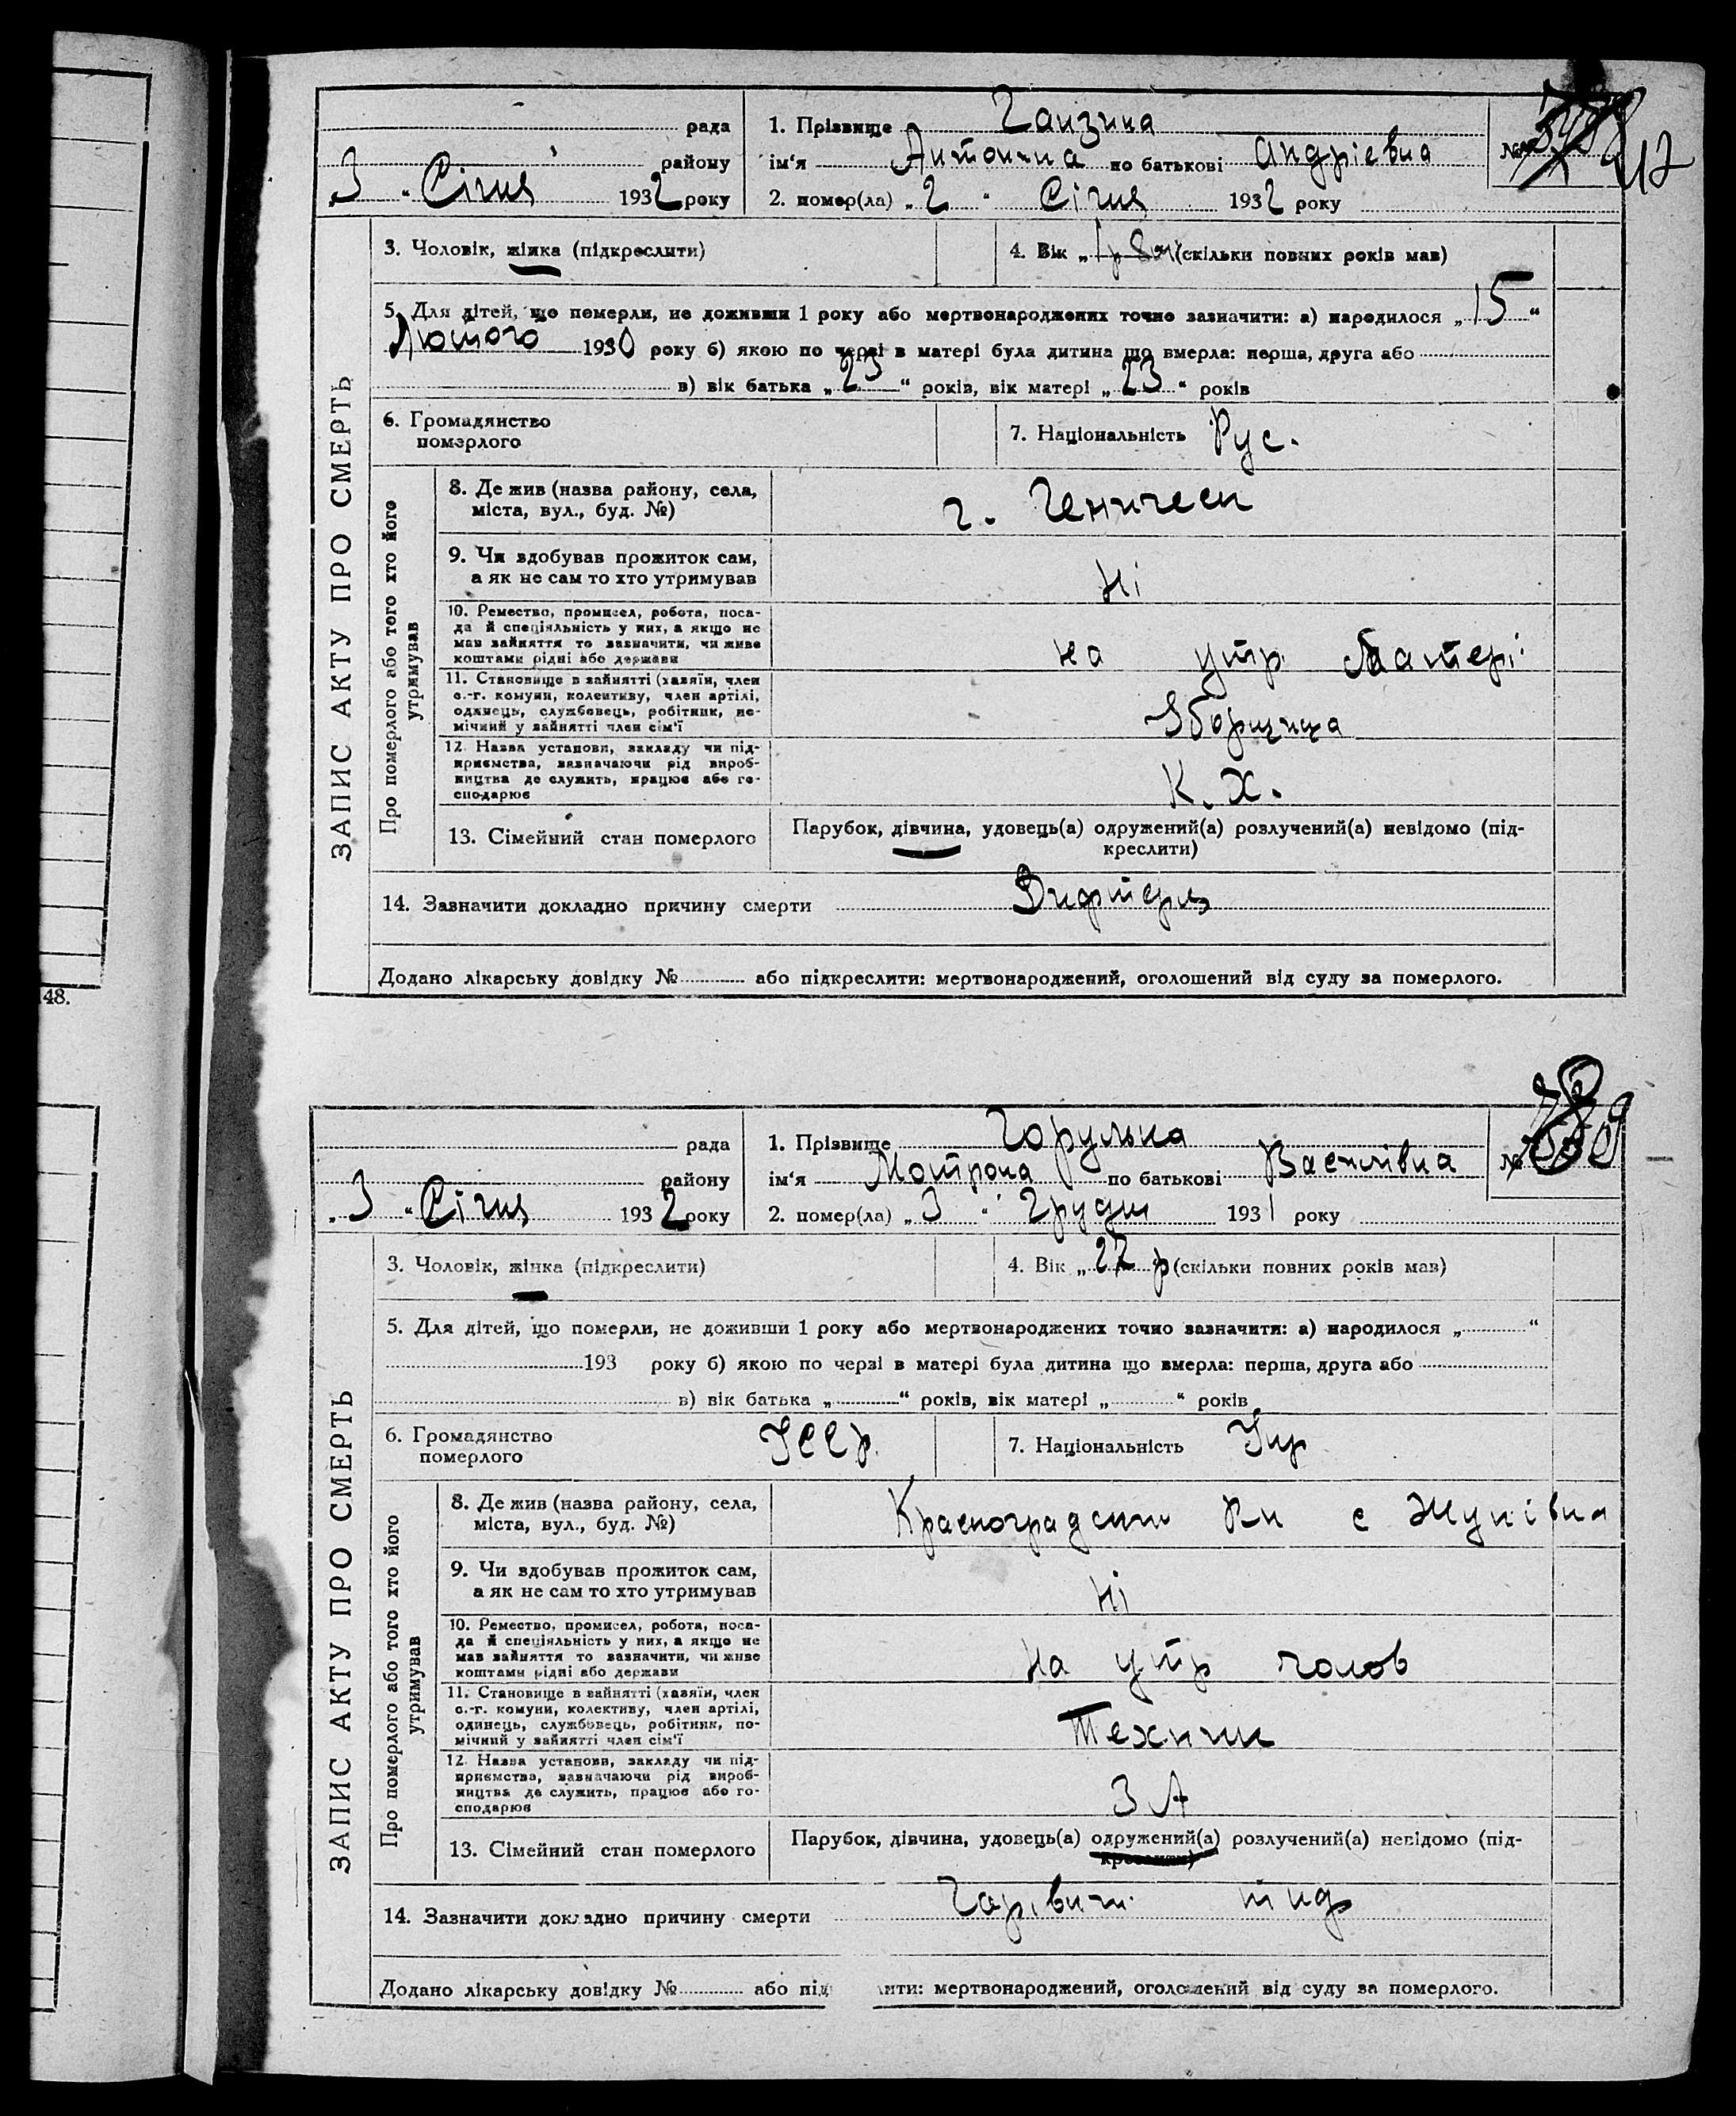 48.
рада
району
„3“ Січня 1932 року
1. Прізвище Ганзина
ім'я Антоніна по батькові Андріевна
2. помер(ла) „2“ Січня 1932 року
№ 217
3. Чоловік, жінка (підкреслити)
4. Вік „ “ (скільки повних років мав)
5. Для дітей, що померли, не доживши 1 року або мертвонароджених точно зазначити: а) народилося „15“
Лютого 1930 року б) якою по черзі в матері була дитина що вмерла: перша, друга або
в) вік батька „25“ років, вік матері „23“ років
6. Громадянство
померлого
7. Національність Рус.
ЗАПИС АКТУ ПРО СМЕРТЬ
Про померлого або того хто його
утримував
8. Де жив (назва району, села,
міста, вул., буд. №)
г. Геническ
9. Чи здобував прожиток сам,
а як не сам то хто утримував
Ні
10. Ремество, промисел, робота, поса-
да й спеціяльність у них, а якщо не
мав зайняття то зазначити, чи живе
коштами рідні або держави
на утр. Матері
11. Становище в зайнятті (хазяїн, член
с.-г. комуни, колективу, член артілі,
одинець, службовець, робітник, по-
мічний у зайнятті член сім'ї
Уборщица
12. Назва установи, закладу чи під-
приємства, зазначаючи рід вироб-
ництва де служить, працює або го-
сподарює
К. Х.
13. Сімейний стан померлого
Парубок, дівчина, удовець(а) одружений(а) розлучений(а) невідомо (під-
креслити)
14. Зазначити докладно причину смерти Дифтерія
Додано лікарську довідку № або підкреслити: мертвонароджений, оголошений від суду за померлого.
рада
району
„3“ Січня 1932 року
1. Прізвище Горулька
ім'я Мотрона по батькові Василівна
2. помер(ла) „3“ Грудня 1931 року
№
3. Чоловік, жінка (підкреслити)
4. Вік „27 р“ (скільки повних років мав)
5. Для дітей, що померли, не доживши 1 року або мертвонароджених точно зазначити: а) народилося „ “
193 року б) якою по черзі в матері була дитина що вмерла: перша, друга або
в) вік батька „ “ років, вік матері „ “ років
6. Громадянство
померлого
УССР.
7. Національність Укр
ЗАПИС АКТУ ПРО СМЕРТЬ
Про померлого або того хто його
утримував
8. Де жив (назва району, села,
міста, вул., буд. №)
Красноградськ Рн с Жуківка
9. Чи здобував прожиток сам,
а як не сам то хто утримував
Ні
10. Ремество, промисел, робота, поса-
да й спеціяльність у них, а якщо не
мав зайняття то зазначити, чи живе
коштами рідні або держави
на утр чолов
11. Становище в зайнятті (хазяїн, член
с.-г. комуни, колективу, член артілі,
одинець, службовець, робітник, по-
мічний у зайнятті член сім'ї
Технік
12. Назва установи, закладу чи під-
приємства, зазначаючи рід вироб-
ництва де служить, працює або го-
сподарює
13. Сімейний стан померлого
Парубок, дівчина, удовець(а) одружений(а) розлучений(а) невідомо (під-
креслити)
14. Зазначити докладно причину смерти тиф
Додано лікарську довідку № або під ити: мертвонароджений, оголошений від суду за померлого.